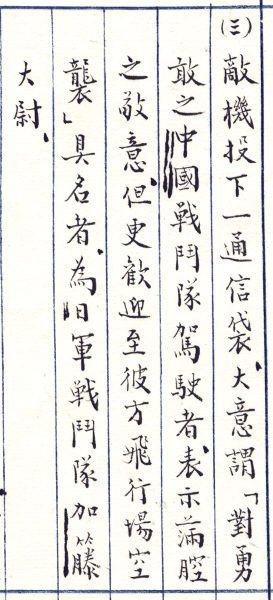 (三)敵機投下一通信袋、大意謂「對勇
敢之中國戰鬥隊駕駛者、表示滿腔
之敬意、但更歡迎至彼方飛行場空
襲」具名者、為日軍戰鬥隊加籐
大尉、